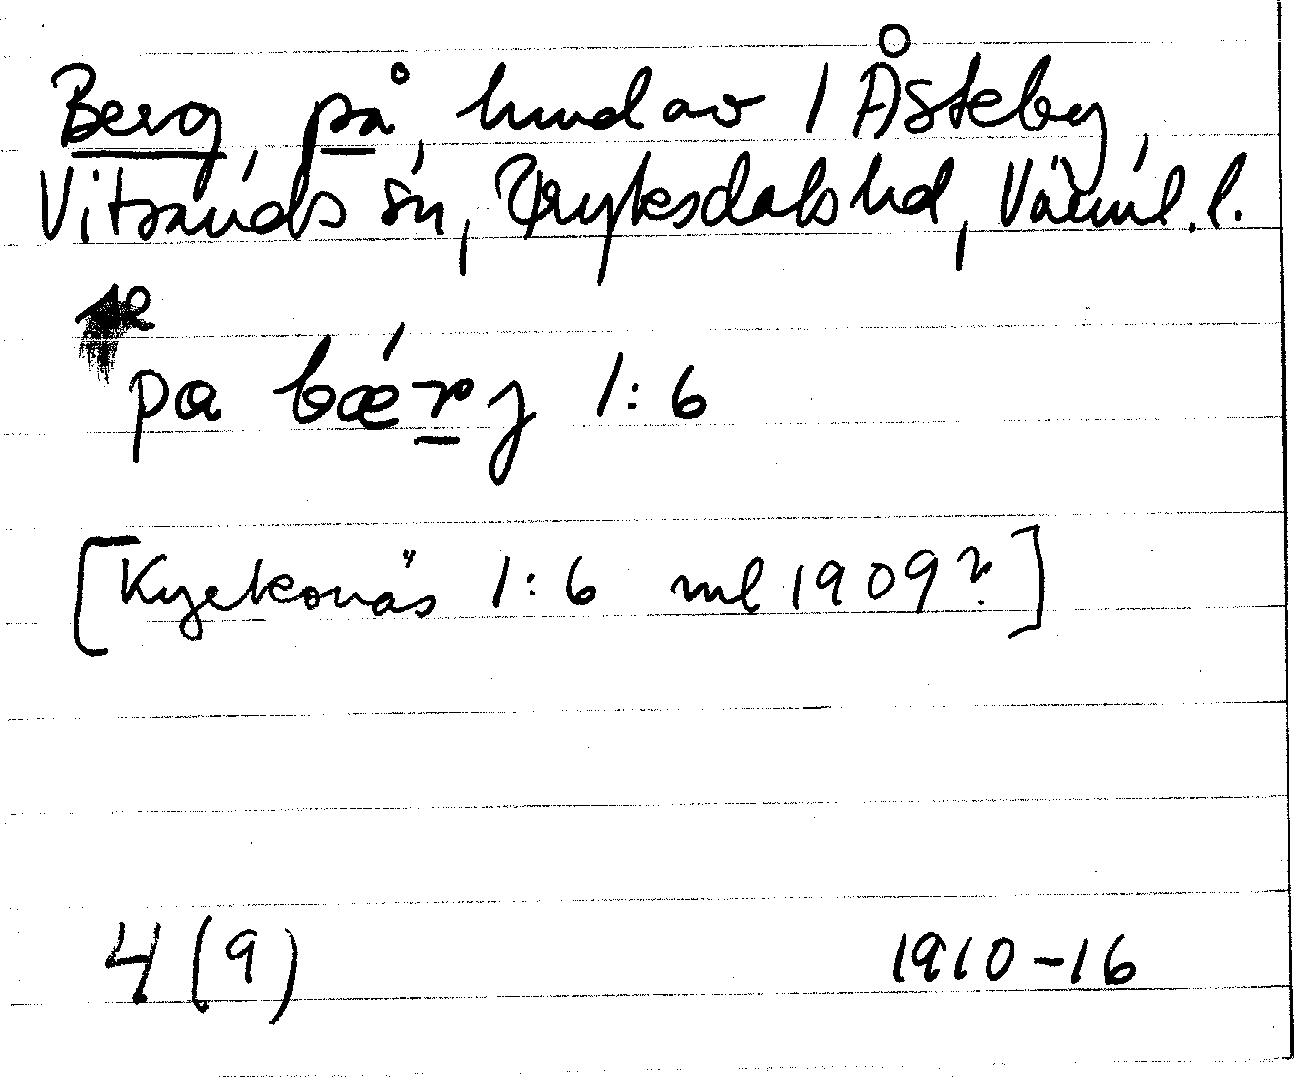 Berg, på, hmd av 1 Åsteby,
Vitsands sn, Fryksdals hd, Värml. l.
pa bærj 1:6
[Kyrkonäs 1:6 ml 1909?]
4 (9)
1910-16